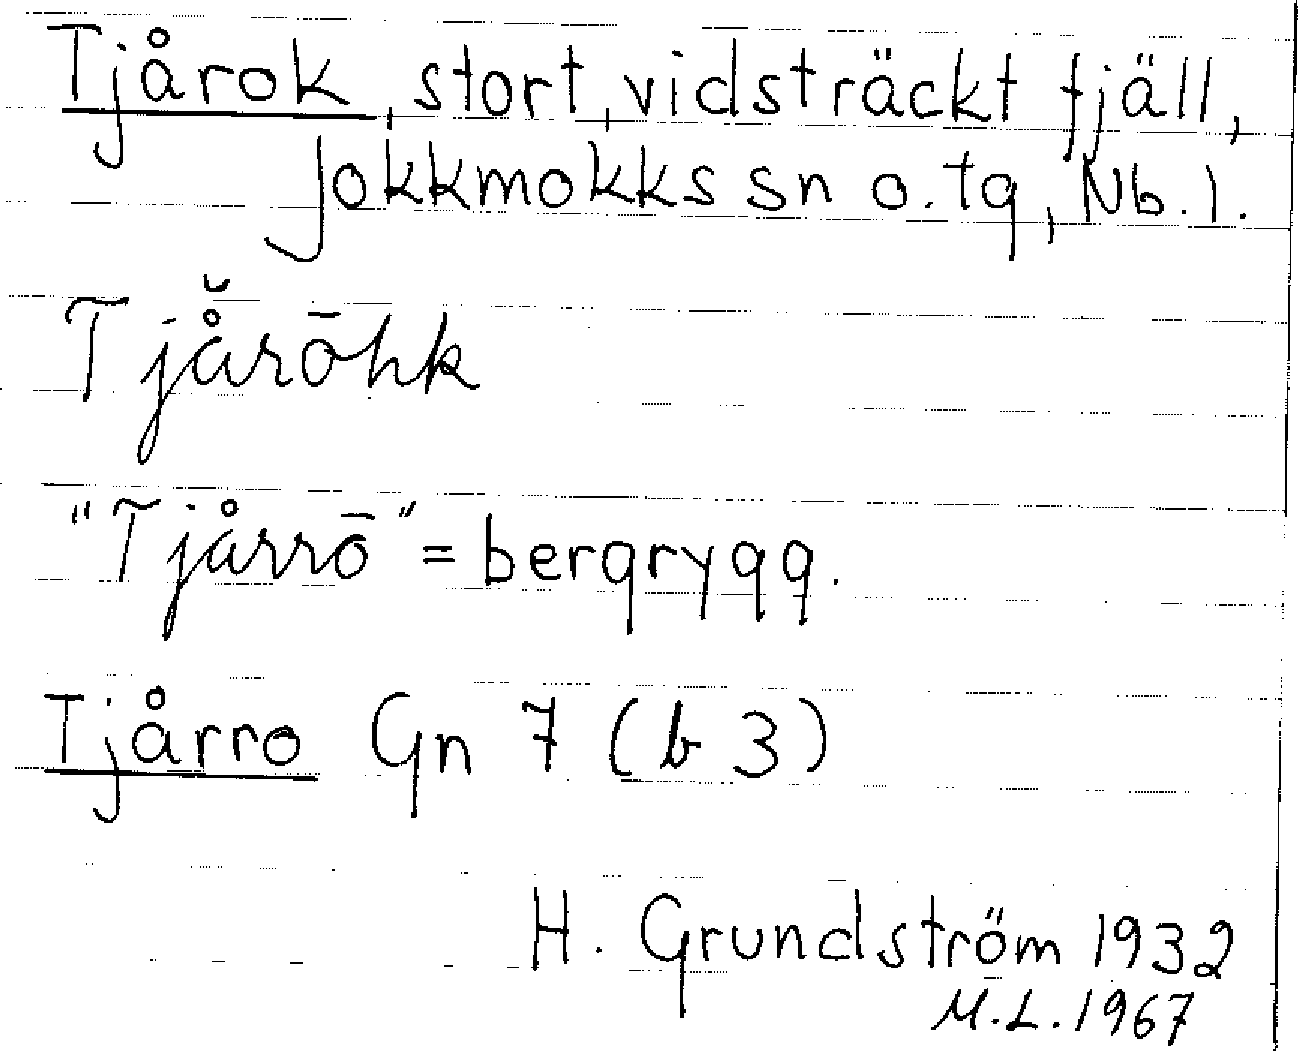 Tjårok, stort, vidsträckt fjäll,
Jokkmokks sn o. tg, Nb. l.
Tjå̆rōhk
"Tjårrō" = bergrygg.
Tjårro Gn 7 (b 3)
H. Grundström 1932
M.L. 1967